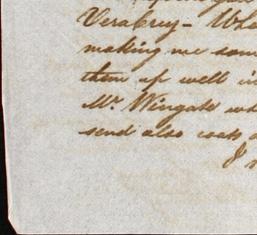 VeraCruz - Whe
making me som
them up well in
Mr Wingate wh
send also coats
I